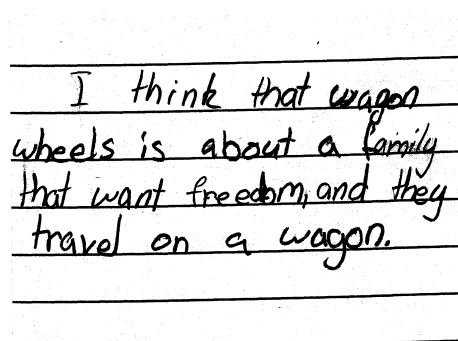 I think that wagon
wheels is about a family
that want freedom, and they
travel on a wagon.